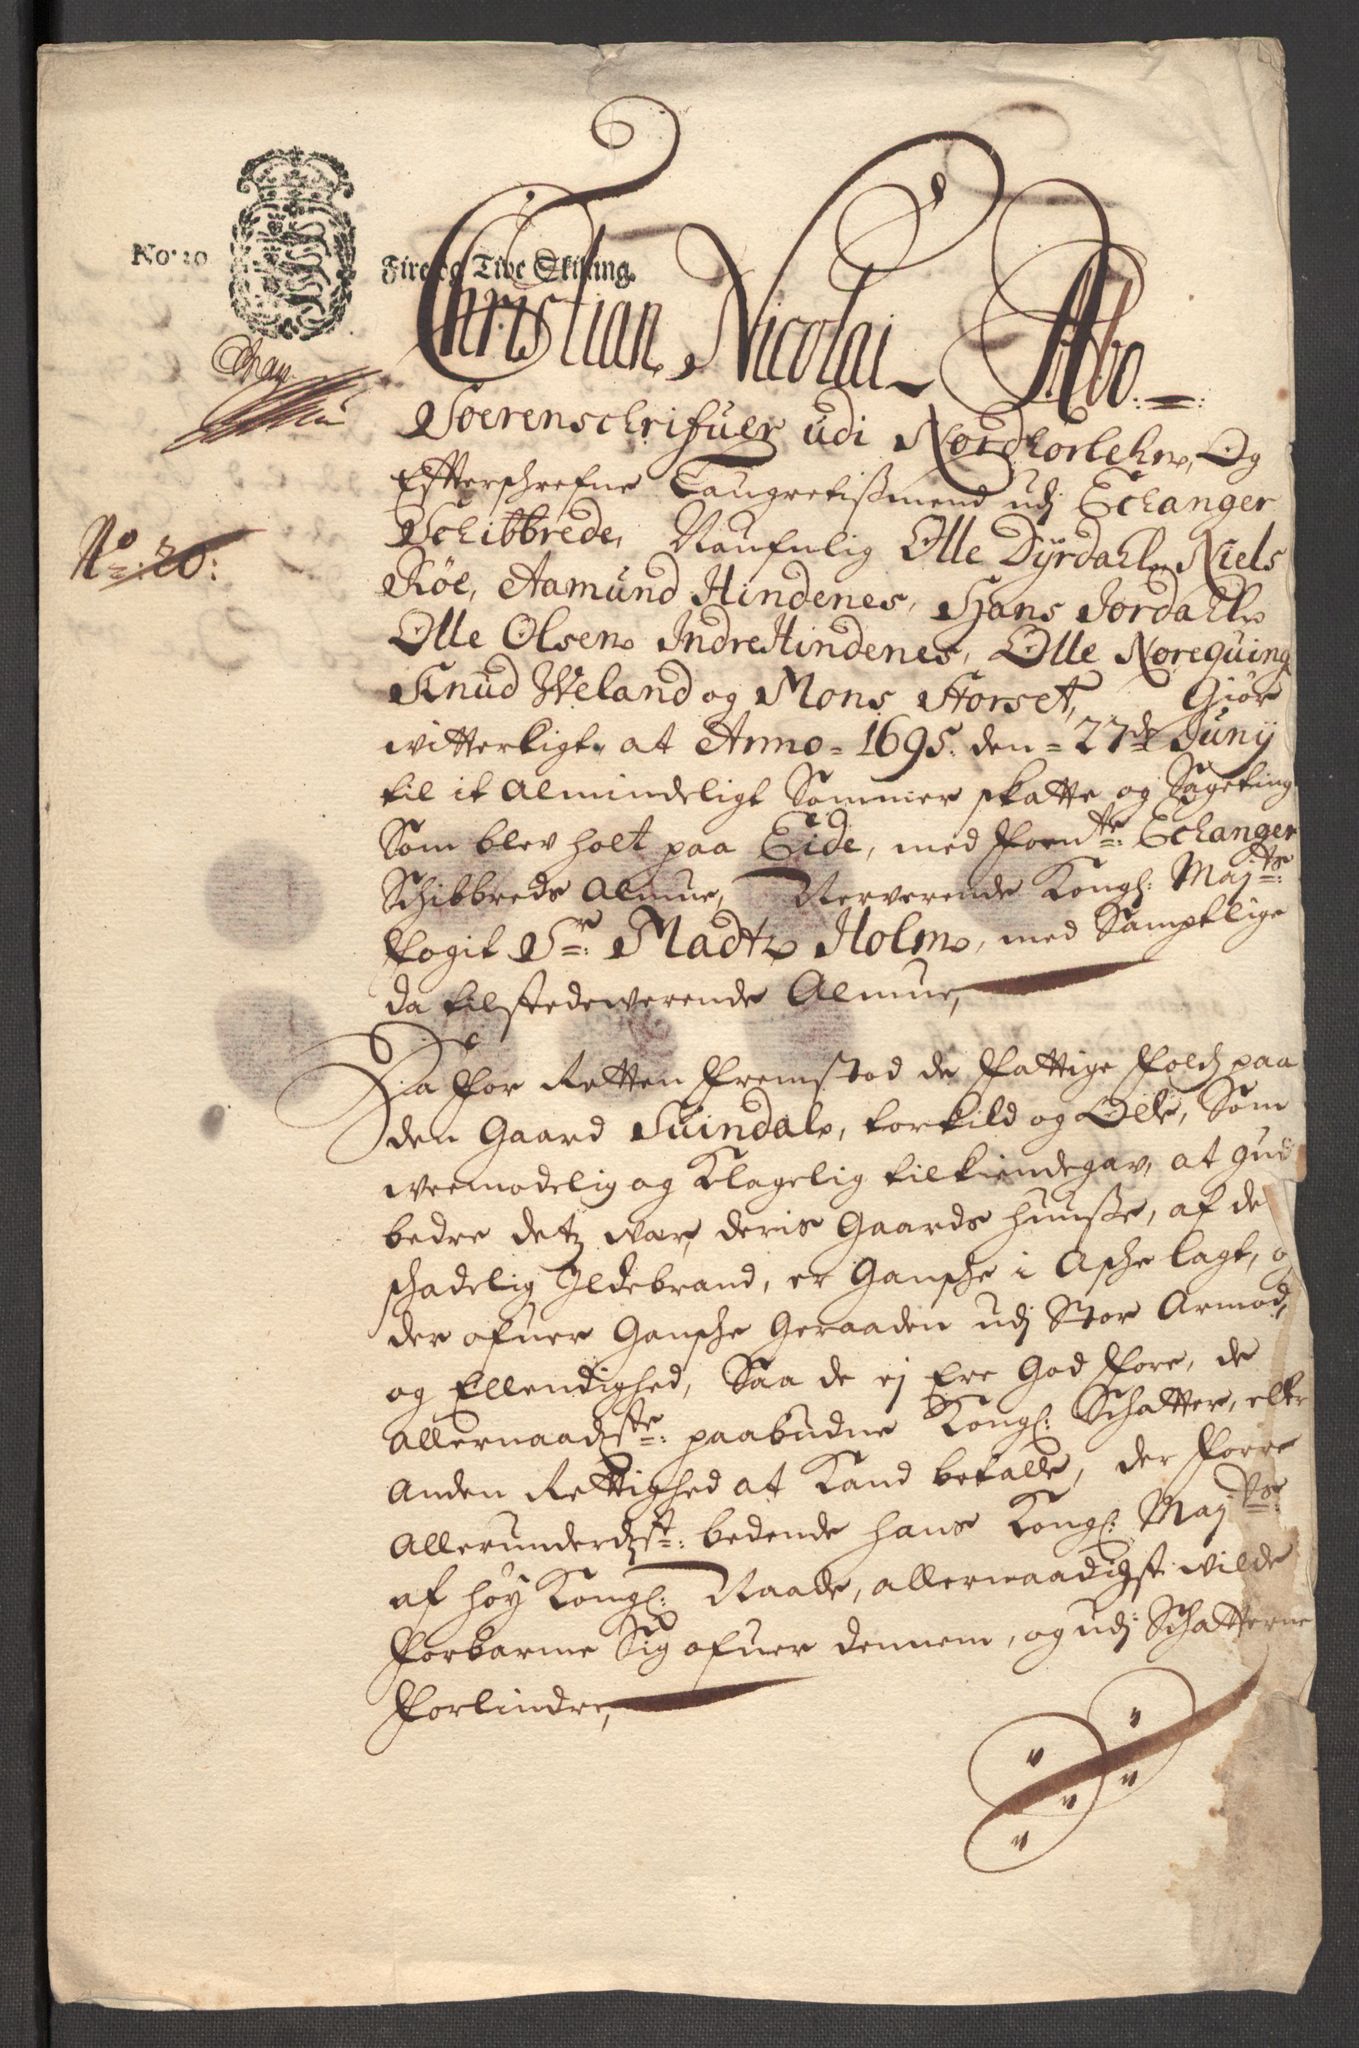 No. 20
Fire og Tive Skilling.
Christian Nicolai Abo
Soerenschrifuer udi Nordhorlehn, Og
Effterschrefne Laugretismend udj Echanger
Schibbrede, Naufnlig Olle Dÿrdahl, Niels
Röe, Aamund Hindenes, Hans Jordahl
Olle Olsen Indre Hindenes, Olle Norequing
Knud Weland og Mons Storset, Giör
witterligt at Anno 1695. den 27de Junij
No: 20:
til it Almindeligt Sommer skatte og Sageting
Som blev holt paa Eide, med Fornte: Echanger
Schibbreds Almue, Nerverende Kongl: Majts:
Fogit Sr: Madtz Holm, med Samptlige
da tilstedewerende Almue,
Da for Retten Fremstod de Fattige Folch paa
den Gaard Suindal, torkild og Olle, Som
weemodelig og Klagelig tilkiendegav, at gud
bedre detz war, deris Gaards huusse, af de
schadelig Ildebrand, er Gansche i Asche lagt,
der ofuer Gansche Geraaden udj Stor Armod,
og Ellendighed, Saa de ej Ere God Fore, de
allernaadste: paabudne Kongl: Schatter, eller
Anden Rettighed at Kand betalle, der Forre
Allerunderdste: bedende hans Kongl: Majts:
af höy Kongl: Naade, allernaadigst wilde
Forbarme Sig ofuer dennem, og udj Schatterne
Forlindre,